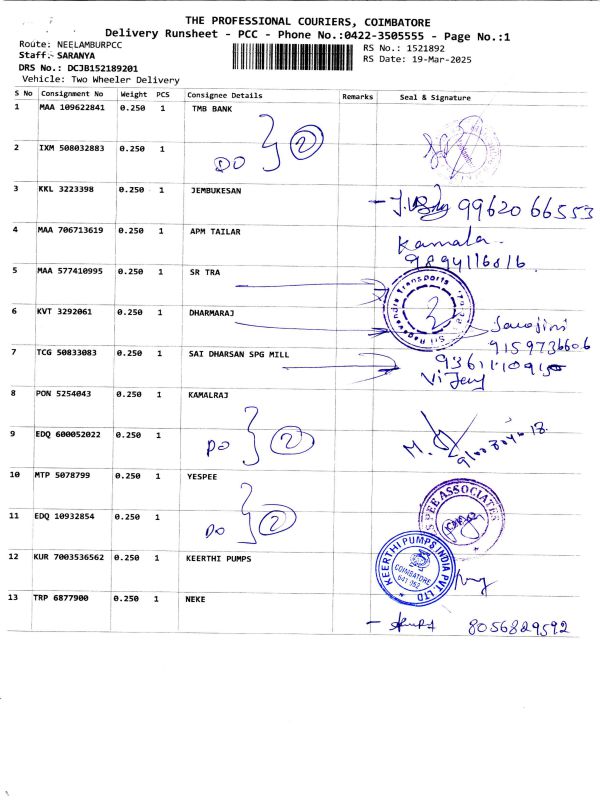 THE PROFESSIONAL COURIERS, COIMBATORE
Delivery Runsheet - PCC - Phone No.:0422-3505555 - Page No.:1
Route: NEELAMBURPCC
RS No.: 1521892
Staff: SARANYA
RS Date: 19-Mar-2025
DRS No.: DCJB152189201
Vehicle: Two Wheeler Delivery
S No Consignment No Weight PCS Consignee Details Remarks Seal & Signature
1 MAA 109622841 0.250 1 TMB BANK
2 IXM 508032883 0.250 1 DO 2
3 KKL 3223398 0.250 1 JEMBUKESAN 99620 66553
4 MAA 706713619 0.250 1 APM TAILAR Kamala
9894116816
5 MAA 577410995 0.250 1 SR TRA
Sri Ragavendra Transports
6 KVT 3292061 0.250 1 DHARMARAJ Sarojini
9159736606
7 TCG 50833083 0.250 1 SAI DHARSAN SPG MILL
8 PON 5254043 0.250 1 KAMALRAJ
9 EDQ 600052022 0.250 1 DO 2
10 MTP 5078799 0.250 1 YESPEE
S PEE ASSOCIATES
11 EDQ 10932854 0.250 1 DO 2
12 KUR 7003536562 0.250 1 KEERTHI PUMPS
KEERTHI PUMPS INDIA PVT LTD
COIMBATORE
13 TRP 6877900 0.250 1 NEKE
8056829592